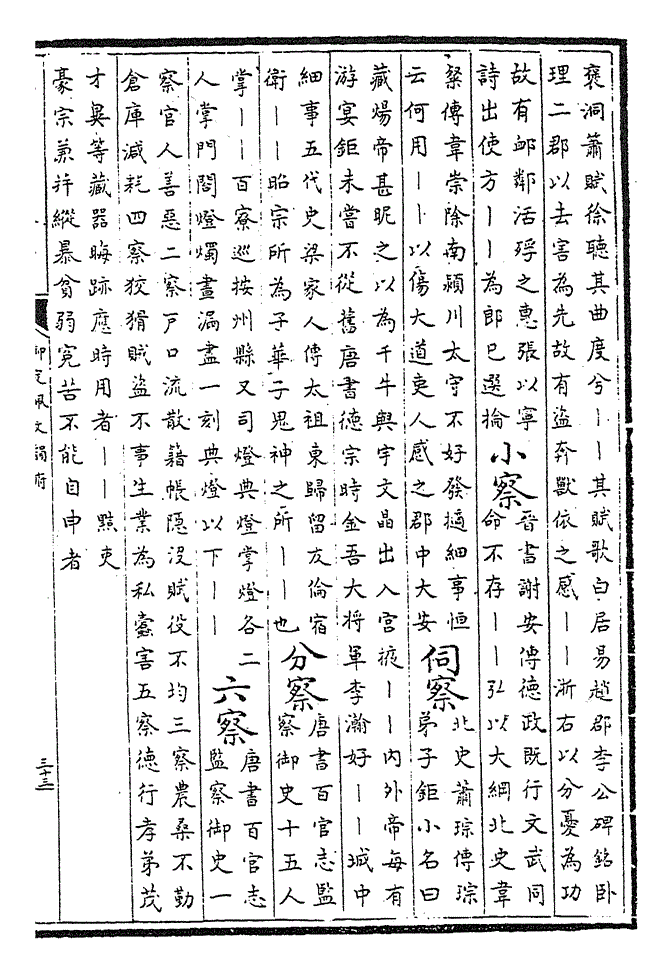 襃洞簫賦徐聽其曲度兮丨丨其賦歌白居易趙郡李公碑銘卧
理二郡以去害為先故有盜奔獸依之感丨丨浙右以分憂為功
故有邮鄰活殍之惠張以寧
詩出使方丨丨為郎已選掄
小察
晉書謝安傳德政既行文武同
命不存丨丨弘以大綱北史韋
粲傳韋崇除南潁川太守不好發擿細事恒
云何用丨丨以傷大道吏人感之郡中大安
伺察
北史蕭琮傳琮
弟子鉅小名曰
藏煬帝甚昵之以為千牛與宇文皛出入宮掖丨丨內外帝每有
游宴鉅未嘗不從舊唐書德宗時金吾大將軍李瀚好丨丨城中
細事五代史梁家人傳太祖東歸留友倫宿
衛丨丨昭宗所為子華子鬼神之所丨丨也
分察
唐書百官志監
察御史十五人
掌丨丨百寮巡按州縣又司燈典燈掌燈各二
人掌門閤燈燭晝漏盡一刻典燈以下丨丨
六察
唐書百官志
監察御史一
察官人善惡二察戶口流散籍帳隱沒賦役不均三察農桑不勤
倉庫減耗四察狡猾賊盜不事生業為私蠹害五察德行孝弟茂
才異等藏器晦跡應時用者丨丨黠吏
豪宗兼并縱暴貧弱冤苦不能自申者
御定佩文韻府
三十三